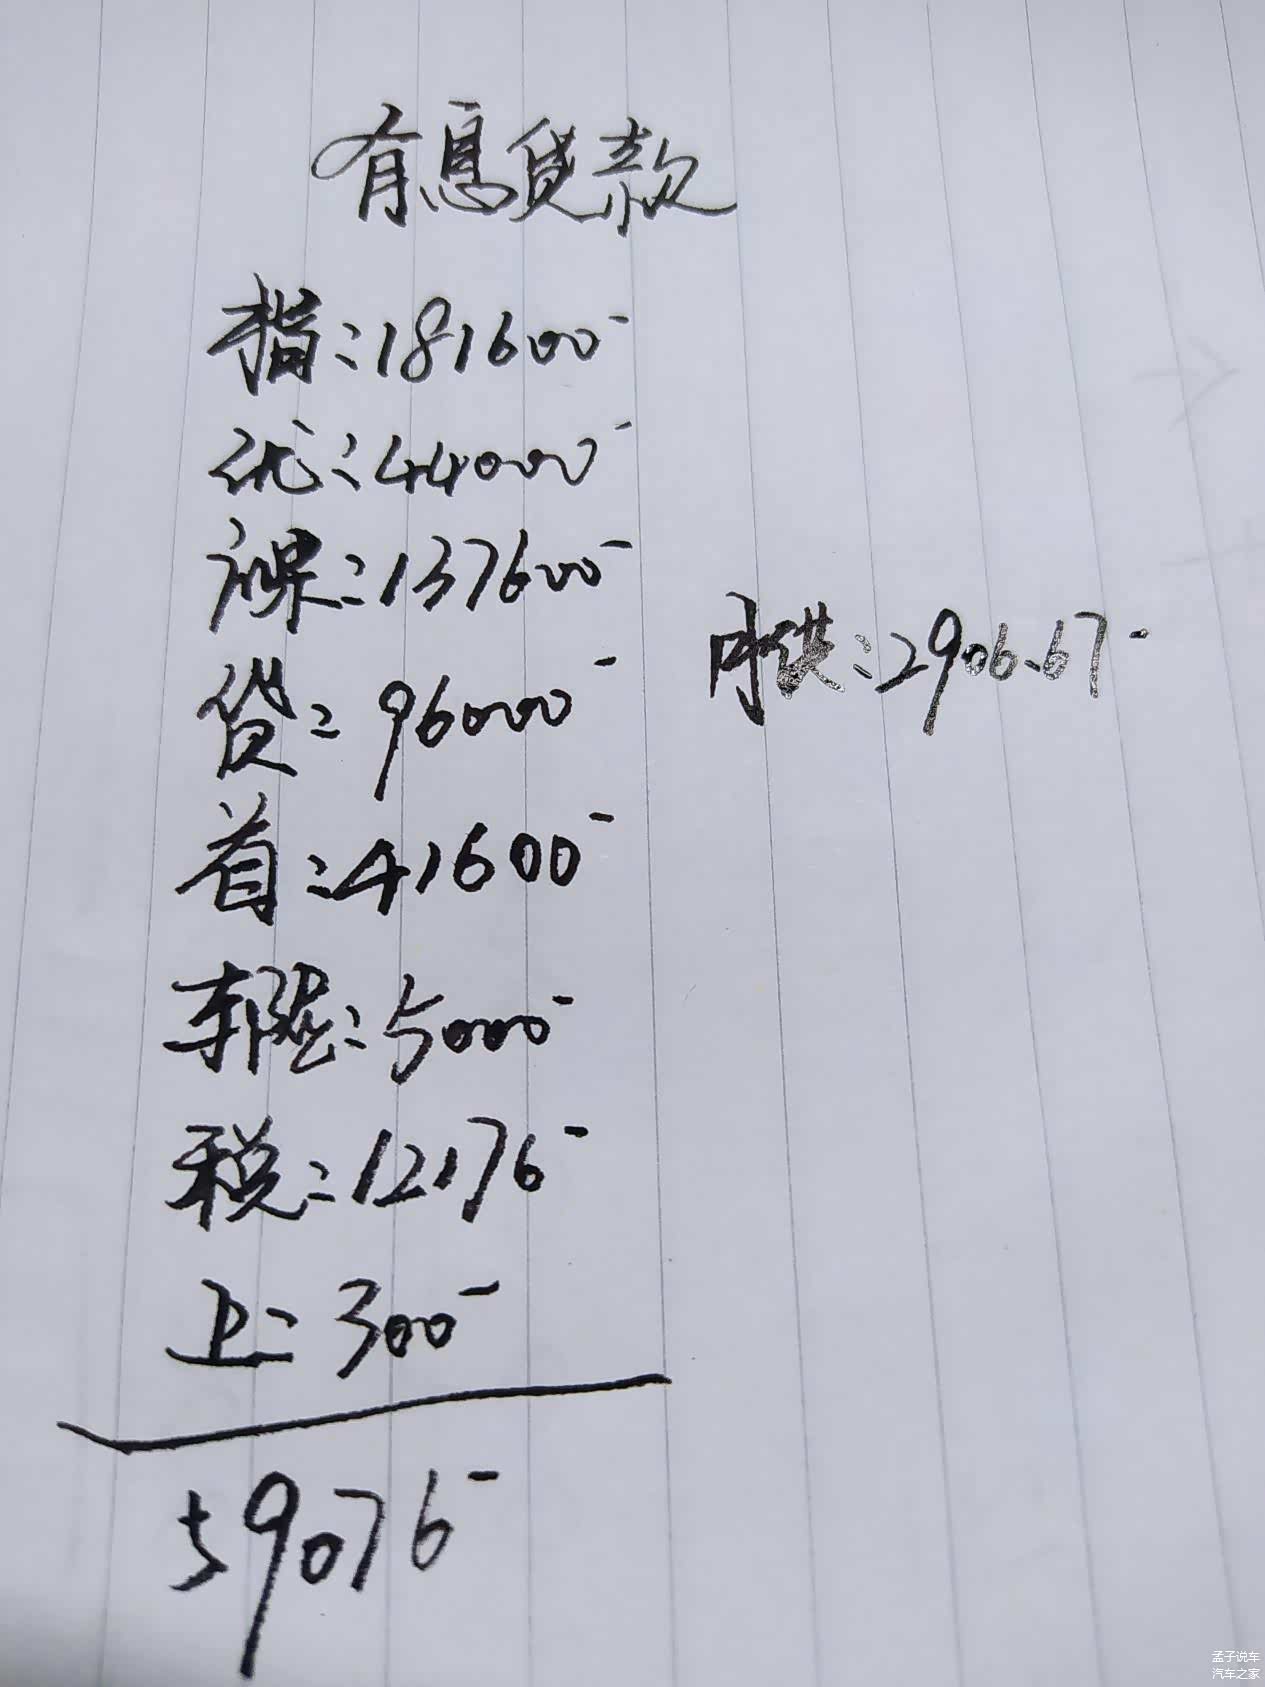 有息贷款
指:181600-
优:44000-
裸:137600-
月供:2906.67-
贷:96000-
首:41600-
车险:5000-
税:12176-
上:300-
59076-
孟子说车
汽车之家